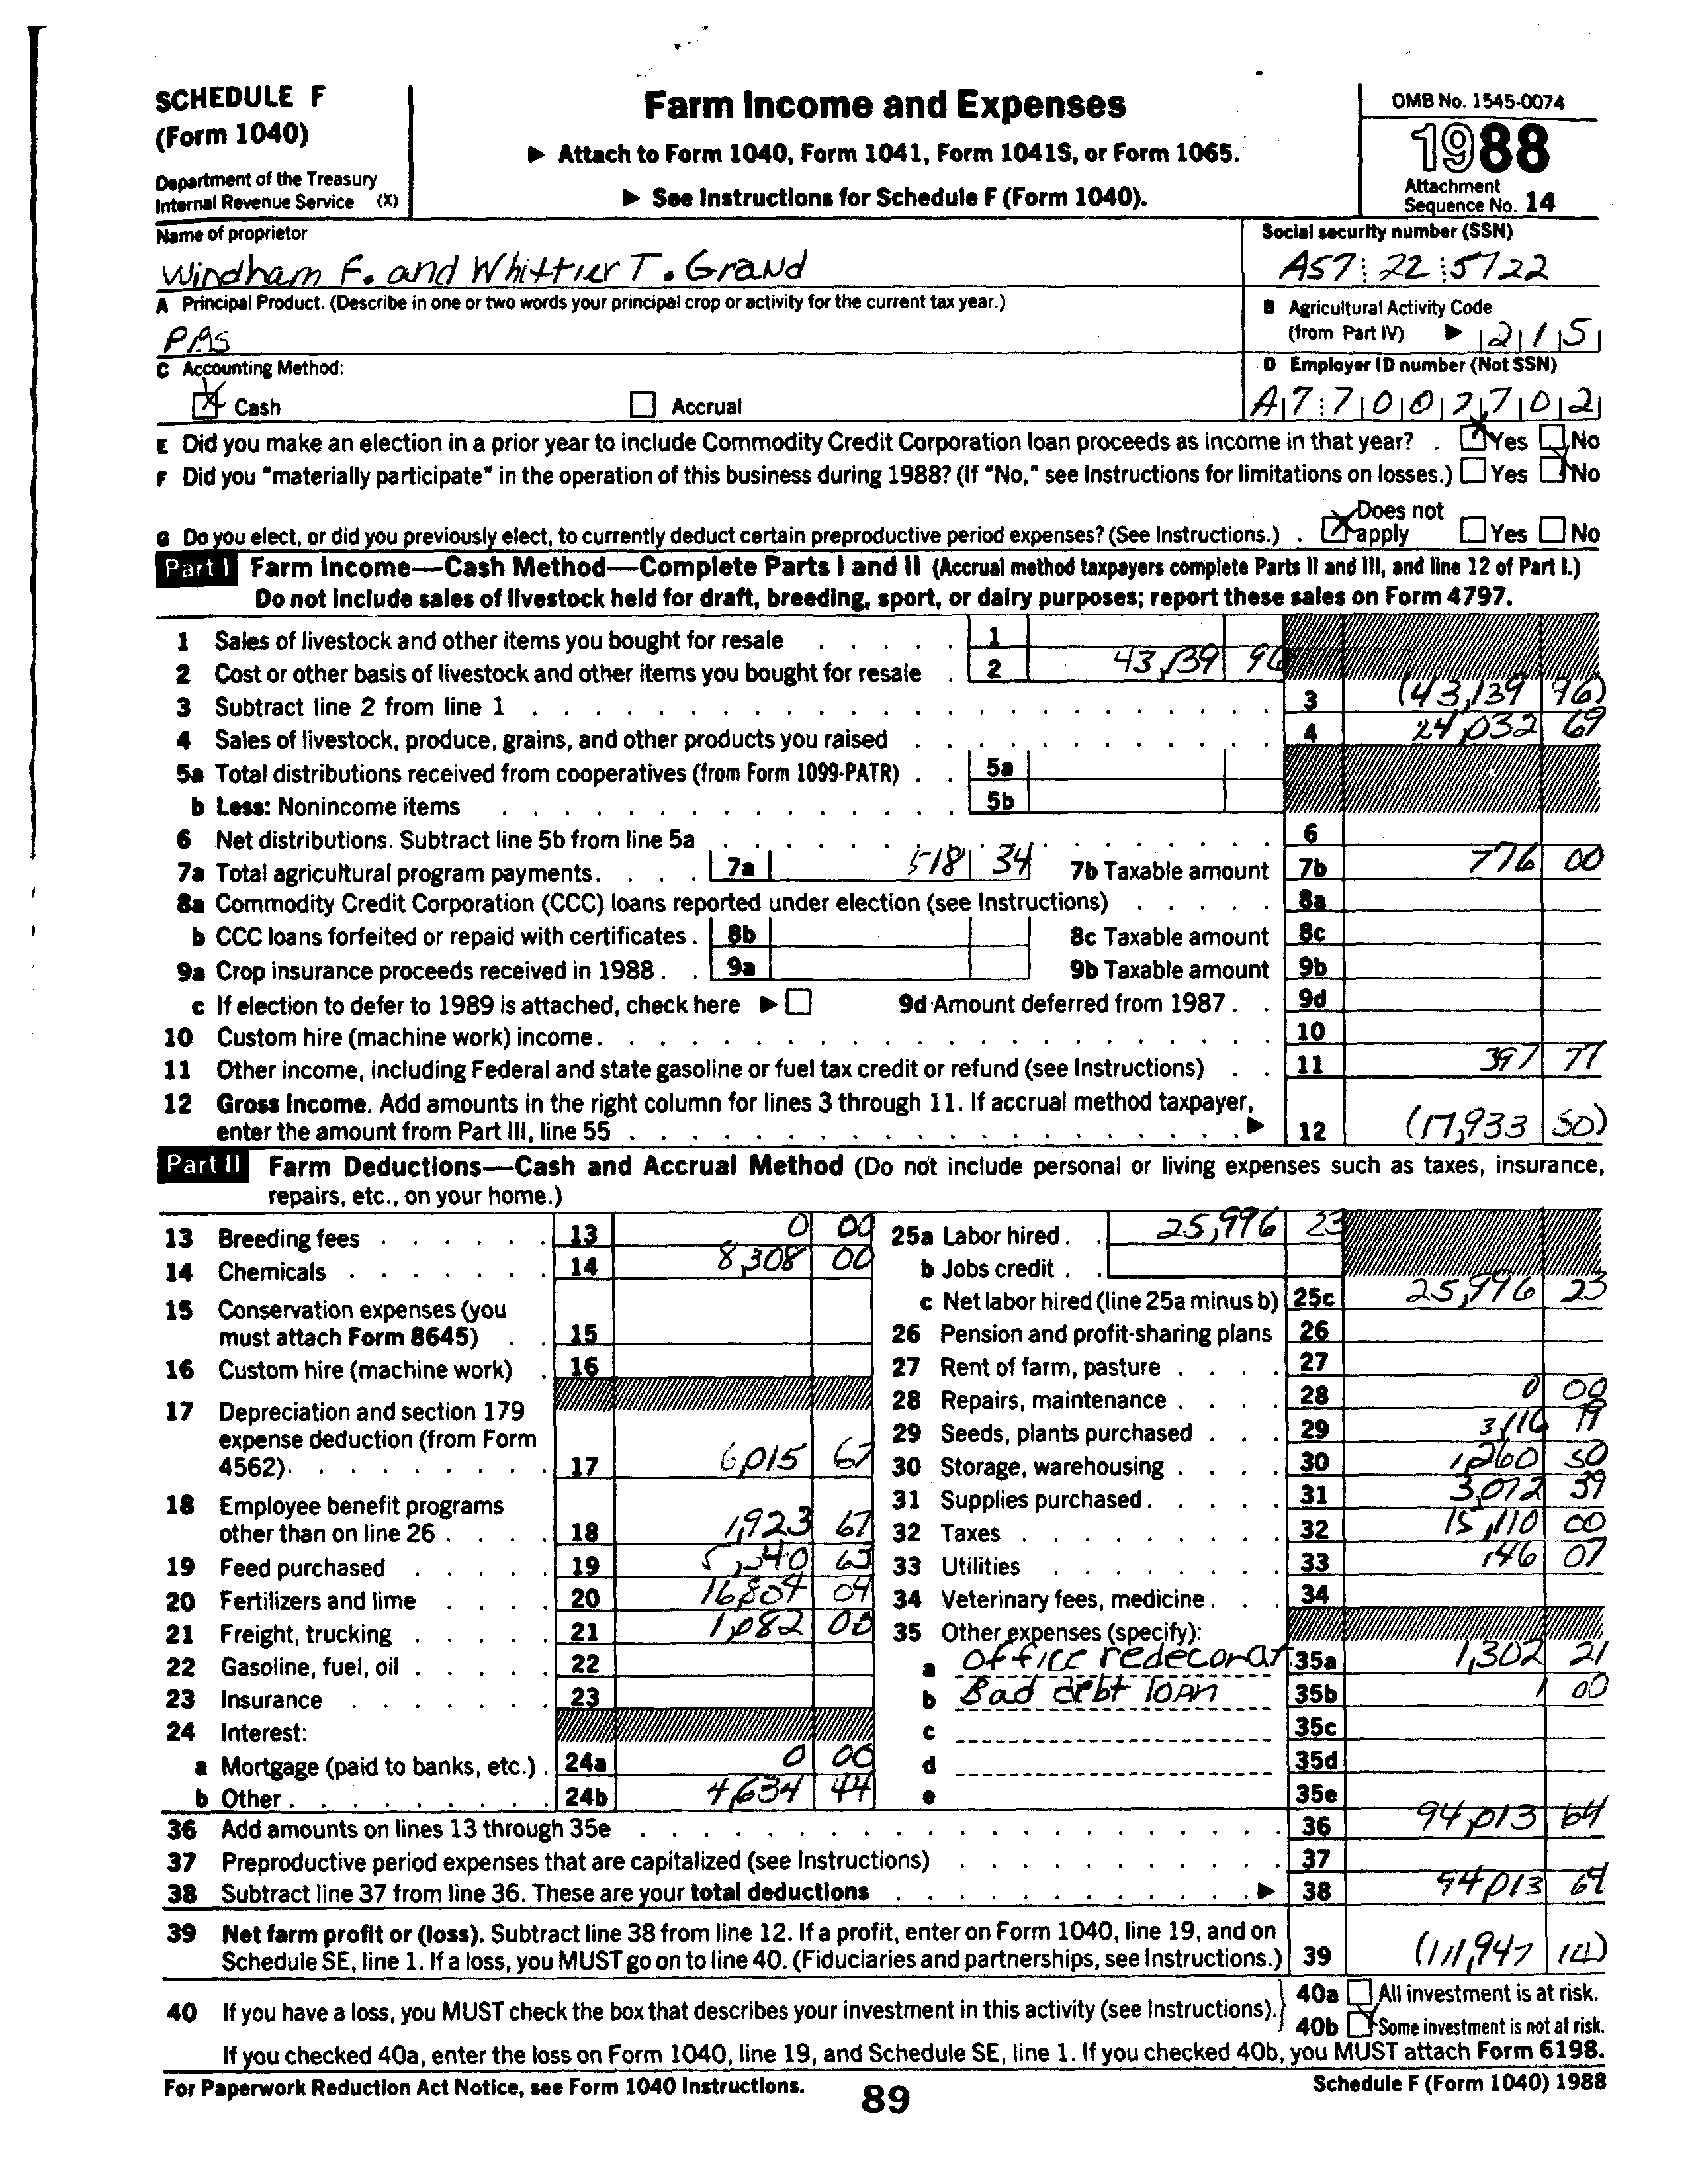 SCHEDULE F
(Form 1040)
Department of the Treasury
Internal Revenue Service (X)
Farm Income and Expenses
▶ Attach to Form 1040, Form 1041, Form 1041S, or Form 1065.
▶ See Instructions for Schedule F (Form 1040).
OMB No. 1545-0074
1988
Attachment
Sequence No. 14
Name of proprietor
Windham F. and Whittier T. Grand
Social security number (SSN)
A57 22 5722
A Principal Product. (Describe in one or two words your principal crop or activity for the current tax year.)
PAS
B Agricultural Activity Code
(from Part IV) ▶ 2 1 5
C Accounting Method:
Cash Accrual
D Employer ID number (Not SSN)
A 7 7 0 0 2 7 0 2
E Did you make an election in a prior year to include Commodity Credit Corporation loan proceeds as income in that year? . Yes No
F Did you "materially participate" in the operation of this business during 1988? (If "No," see Instructions for limitations on losses.) Yes No
G Do you elect, or did you previously elect, to currently deduct certain preproductive period expenses? (See Instructions.) . Does not apply Yes No
Part I Farm Income—Cash Method—Complete Parts I and II (Accrual method taxpayers complete Parts II and III, and line 12 of Part I.)
Do not include sales of livestock held for draft, breeding, sport, or dairy purposes; report these sales on Form 4797.
1 Sales of livestock and other items you bought for resale 1
2 Cost or other basis of livestock and other items you bought for resale 2 43,139 96
3 Subtract line 2 from line 1 3 (43,139 96)
4 Sales of livestock, produce, grains, and other products you raised 4 24,032 69
5a Total distributions received from cooperatives (from Form 1099-PATR) 5a
b Less: Nonincome items 5b
6 Net distributions. Subtract line 5b from line 5a 6
7a Total agricultural program payments 7a 518 34 7b Taxable amount 7b 776 00
8a Commodity Credit Corporation (CCC) loans reported under election (see Instructions) 8a
b CCC loans forfeited or repaid with certificates 8b 8c Taxable amount 8c
9a Crop insurance proceeds received in 1988 9a 9b Taxable amount 9b
c If election to defer to 1989 is attached, check here ▶ 9d Amount deferred from 1987 9d
10 Custom hire (machine work) income 10
11 Other income, including Federal and state gasoline or fuel tax credit or refund (see Instructions) 11 397 77
12 Gross Income. Add amounts in the right column for lines 3 through 11. If accrual method taxpayer,
enter the amount from Part III, line 55 ▶ 12 (17,933 50)
Part II Farm Deductions—Cash and Accrual Method (Do not include personal or living expenses such as taxes, insurance,
repairs, etc., on your home.)
13 Breeding fees 13 0 00
14 Chemicals 14 8,308 00
15 Conservation expenses (you
must attach Form 8645) 15
16 Custom hire (machine work) 16
17 Depreciation and section 179
expense deduction (from Form
4562) 17 6,015 67
18 Employee benefit programs
other than on line 26 18 1,923 67
19 Feed purchased 19
20 Fertilizers and lime 20 16,804 04
21 Freight, trucking 21 1,082
22 Gasoline, fuel, oil 22
23 Insurance 23
24 Interest:
a Mortgage (paid to banks, etc.) 24a 0 00
b Other 24b 4,634 44
25a Labor hired 25,996 23
b Jobs credit
c Net labor hired (line 25a minus b) 25c 25,996 23
26 Pension and profit-sharing plans 26
27 Rent of farm, pasture 27
28 Repairs, maintenance 28 0 00
29 Seeds, plants purchased 29 3,116 19
30 Storage, warehousing 30 1,260 50
31 Supplies purchased 31 3,072 39
32 Taxes 32 15,110 00
33 Utilities 33 146 07
34 Veterinary fees, medicine 34
35 Other expenses (specify):
a Office redecorat 35a 1,302 21
b Bad debt loan 35b 1 00
c 35c
d 35d
e 35e
36 Add amounts on lines 13 through 35e 36 94,013 64
37 Preproductive period expenses that are capitalized (see Instructions) 37
38 Subtract line 37 from line 36. These are your total deductions ▶ 38 94,013 64
39 Net farm profit or (loss). Subtract line 38 from line 12. If a profit, enter on Form 1040, line 19, and on
Schedule SE, line 1. If a loss, you MUST go on to line 40. (Fiduciaries and partnerships, see Instructions.) 39 (111,947 14)
40 If you have a loss, you MUST check the box that describes your investment in this activity (see Instructions). 40a All investment is at risk.
40b Some investment is not at risk.
If you checked 40a, enter the loss on Form 1040, line 19, and Schedule SE, line 1. If you checked 40b, you MUST attach Form 6198.
For Paperwork Reduction Act Notice, see Form 1040 Instructions.
89
Schedule F (Form 1040) 1988